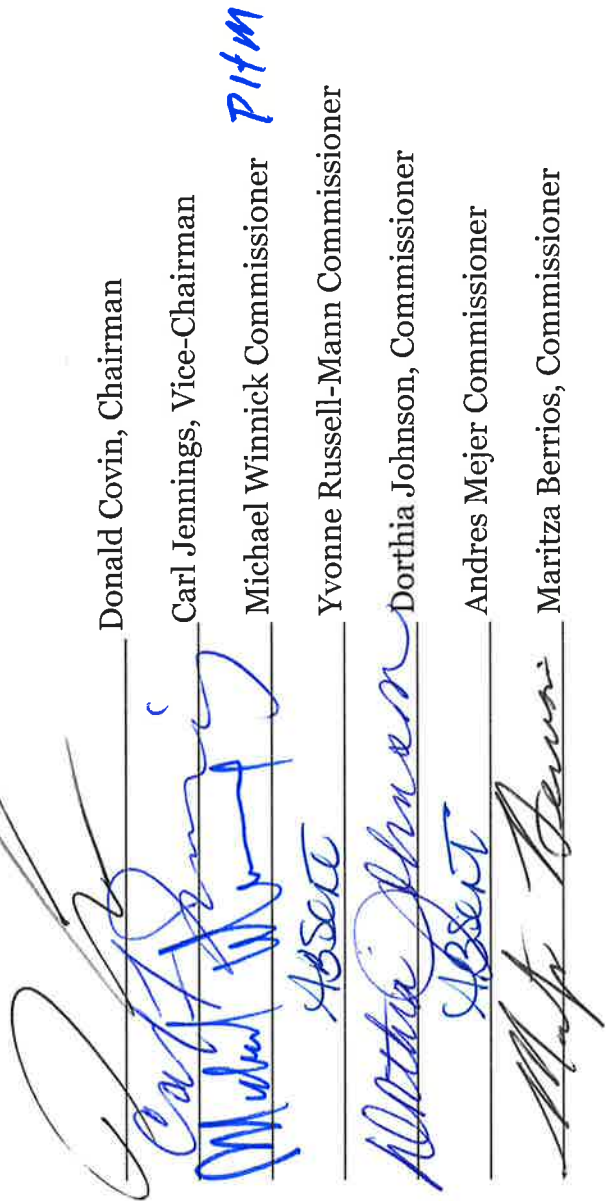 Donald Covin, Chairman
Carl Jennings, Vice-Chairman
Michael Winnick Commissioner PHM
ABSENT Yvonne Russell-Mann Commissioner
Dorthia Johnson Dorthia Johnson, Commissioner
ABSENT Andres Mejer Commissioner
Maritza Berrios, Commissioner